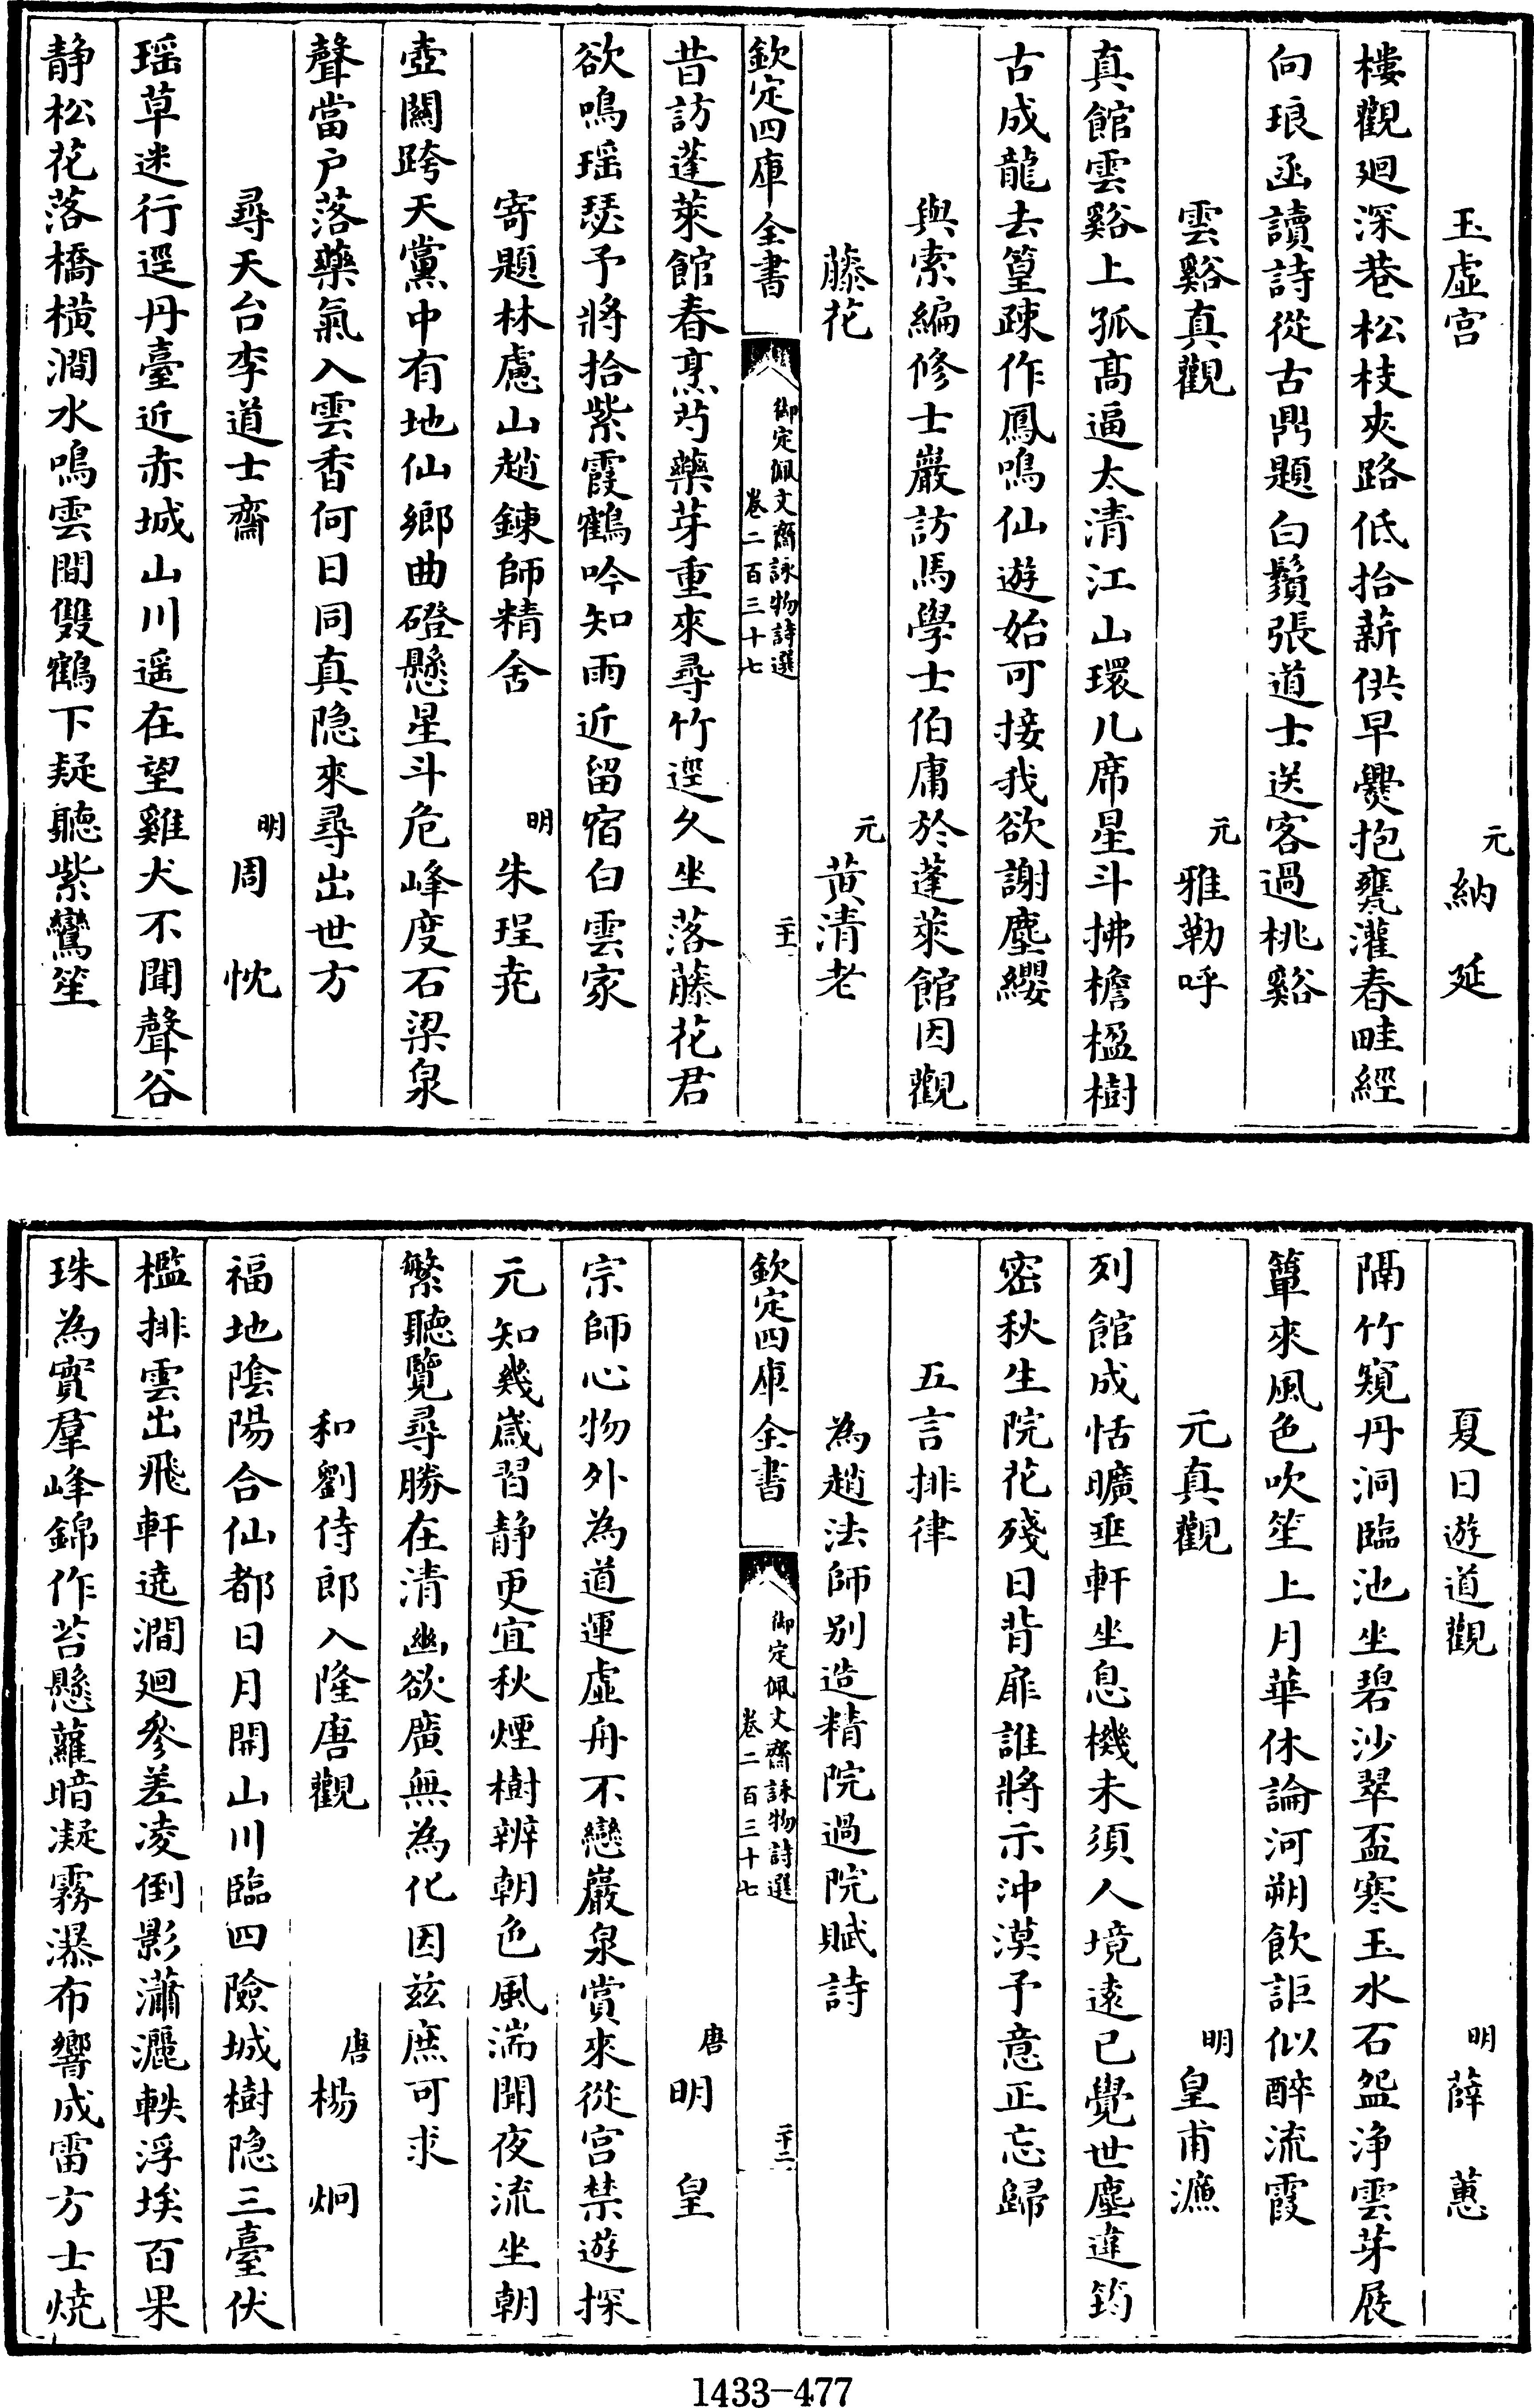 玉虛宮　元　納延
樓觀迴深巷松枝夾路低拾薪供早爨抱甕灌春畦經
向琅函讀詩從古鼎題白鬚張道士送客過桃谿
雲谿真觀　元　雅勒呼
真館雲谿上孤高逼太清江山環几席星斗拂檐楹樹
古成龍去篁疎作鳳鳴仙遊始可接我欲謝塵纓
與索編修士巖訪馬學士伯庸於蓬萊館因觀
藤花　元　黄清老
欽定四庫全書　御定佩文齋詠物詩選　卷二百三十七　二十一
昔訪蓬萊館春烹芍藥芽重來尋竹逕久坐落藤花君
欲鳴瑶瑟予將拾紫霞鶴吟知雨近留宿白雲家
寄題林慮山趙錬師精舍　明　朱珵堯
壺關跨天黨中有地仙鄉曲磴懸星斗危峰度石梁泉
聲當户落藥氣入雲香何日同真隐來尋出世方
尋天台李道士齋　明　周忱
瑶草迷行逕丹臺近赤城山川遥在望雞犬不聞聲谷
静松花落橋横澗水鳴雲間雙鶴下疑聽紫鸞笙
夏日遊道觀　明　薛蕙
隔竹窺丹洞臨池坐碧沙翠盃寒玉水石盌浄雲芽展
簟來風色吹笙上月華休論河朔飲詎似醉流霞
元真觀　明　皇甫濂
列館成恬曠亜軒坐息機未須人境遠已覺世塵違筠
密秋生院花殘日背扉誰將示沖漠予意正忘歸
五言排律
為趙法師别造精院過院賦詩
欽定四庫全書　御定佩文齋詠物詩選　卷二百三十七　二十二
唐　明皇
宗師心物外為道運虛舟不戀巖泉賞來從宫禁遊探
元知幾歲習静更宜秋煙樹辨朝色風湍聞夜流坐朝
繁聽覽尋勝在清幽欲廣無為化因兹庶可求
和劉侍郎入隆唐觀　唐　楊炯
福地陰陽合仙都日月開山川臨四險城樹隐三臺伏
檻排雲出飛軒遶澗廻參差凌倒影瀟灑軼浮埃百果
珠為實羣峰錦作苔懸蘿暗凝霧瀑布響成雷方士燒
1433-477